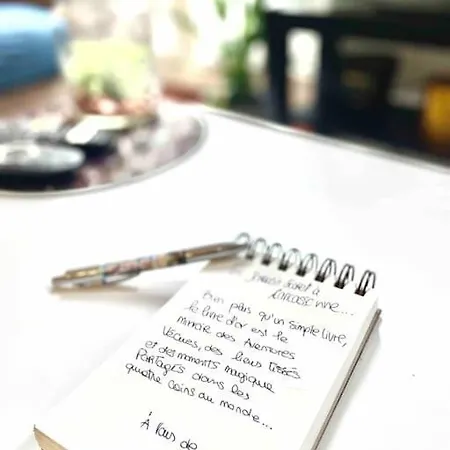 à
Carcassonne...
Bien plus qu'un simple livre,
le livre d'or est le
miroir des Aventures
Vécues, des liens tissés
et des moments magique
Partagés dans les
quatre coins du monde...
À Vous de